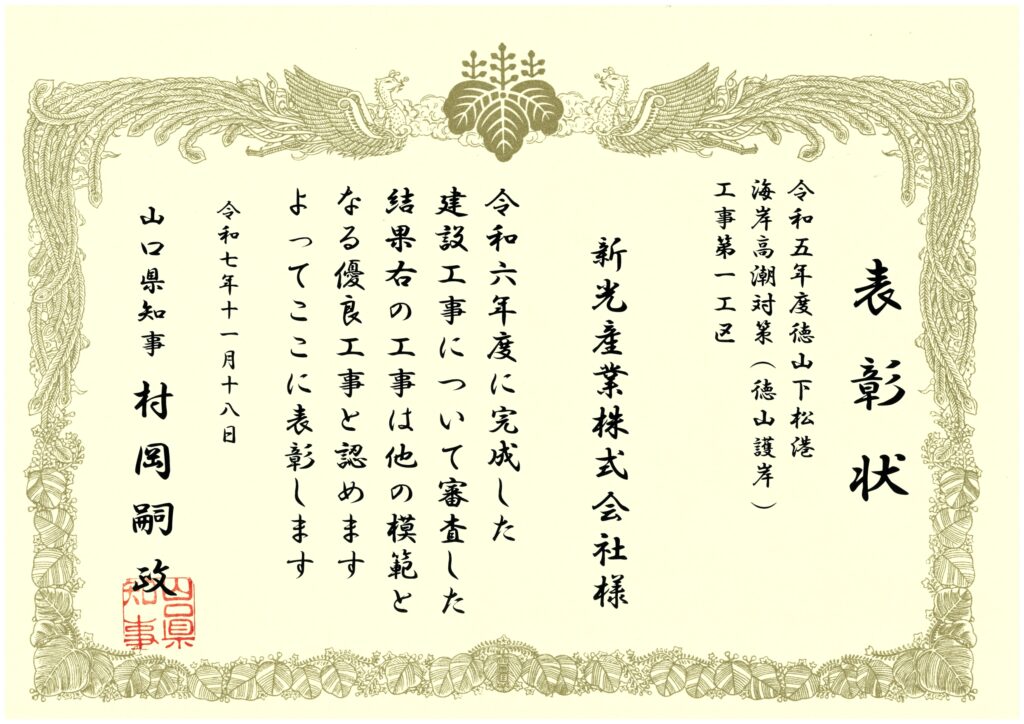 表彰状
令和五年度徳山下松港
海岸高潮対策（徳山護岸）
工事第一工区
新光産業株式会社様
令和六年度に完成した
建設工事について審査した
結果右の工事は他の模範と
なる優良工事と認めます
よってここに表彰します
令和七年十一月十八日
山口県知事 村岡嗣政
山口縣
知事